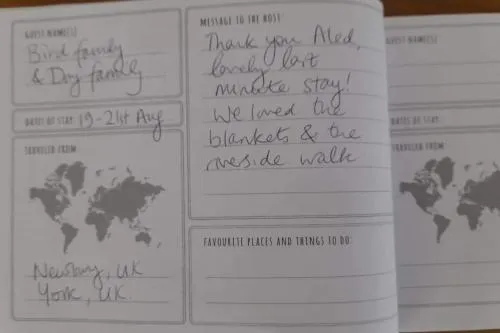 GUEST NAME(S)
Bird family
& Day family
DATES OF STAY 19-21st Aug
TRAVELED FROM
Newbury, UK
York, UK.
MESSAGE TO THE HOST:
Thank you Aled,
lovely last
minute stay!
We loved the
blankets & the
riverside walk
FAVOURITE PLACES AND THINGS TO DO:
GUEST NAME(S)
DATES OF STAY
TRAVELED FROM